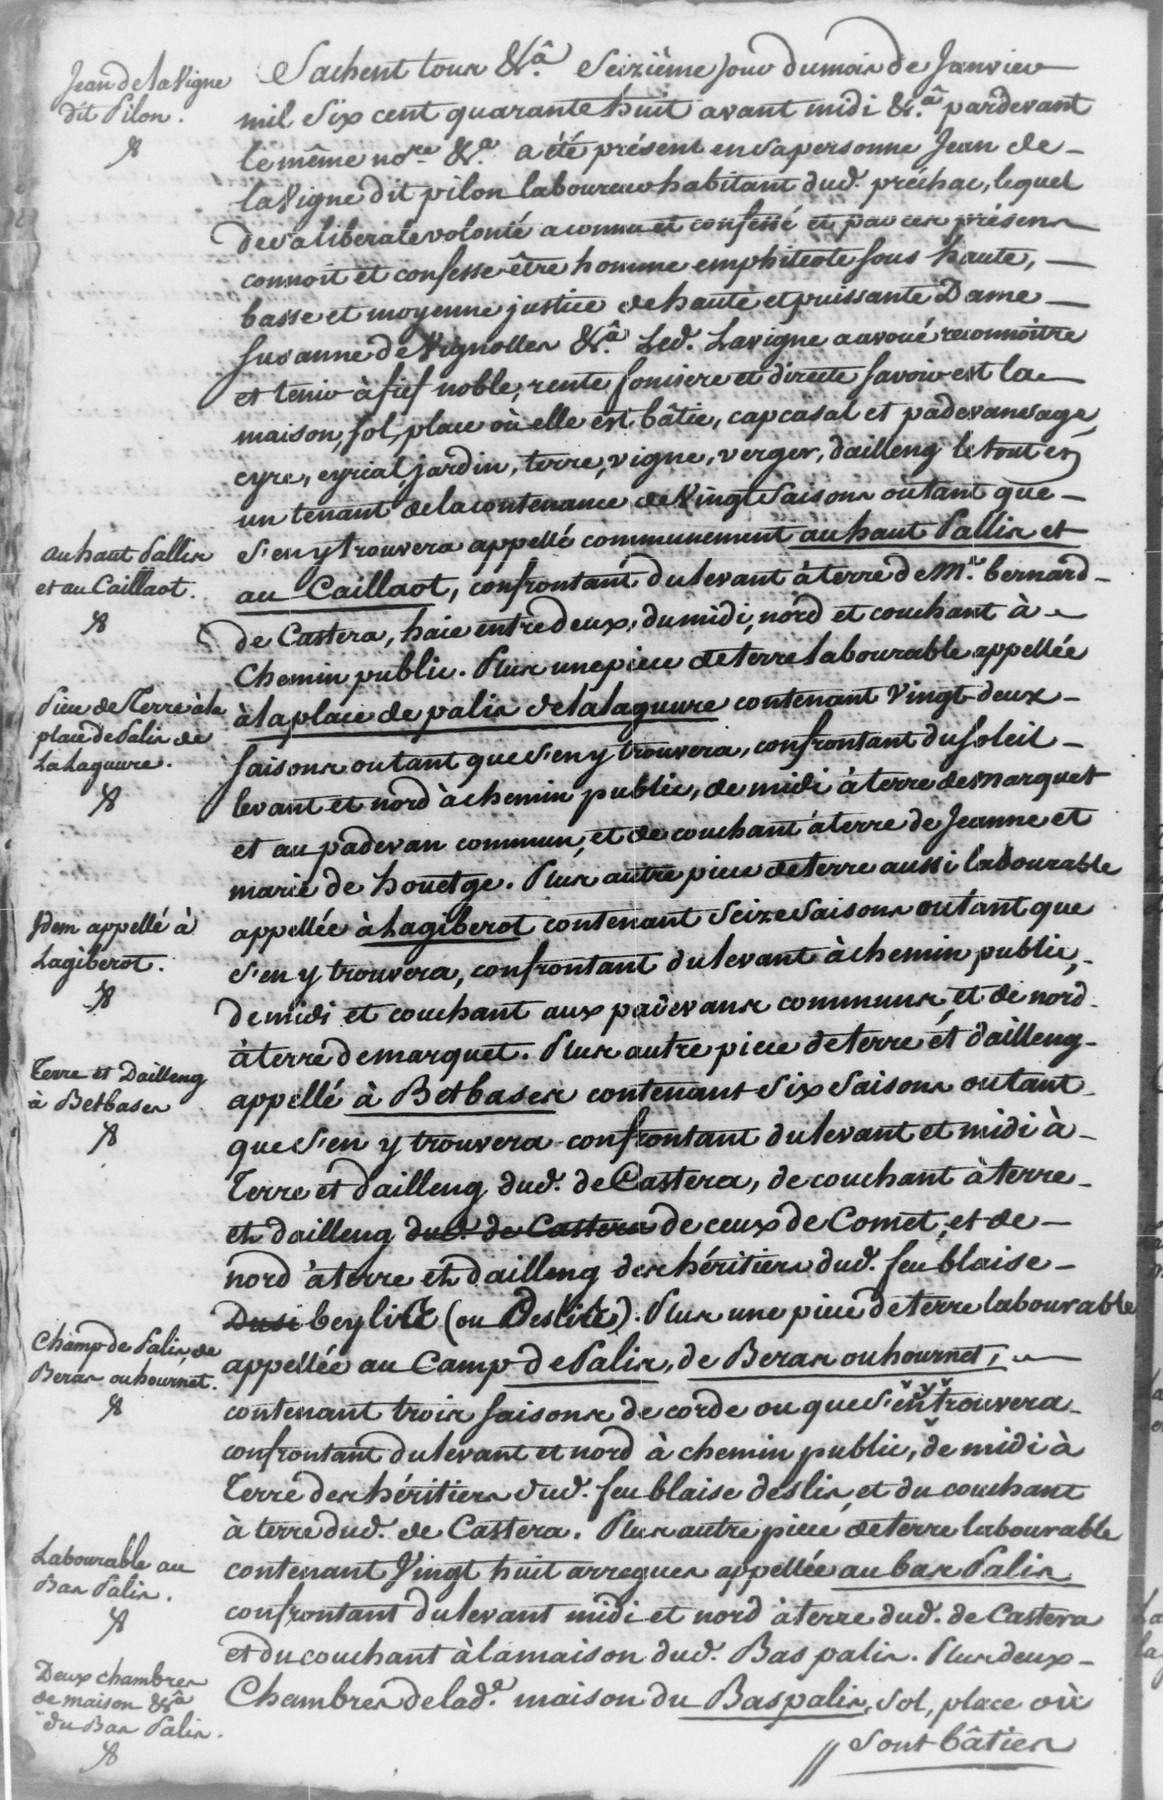 Jean de la Vigne
dit Pilon.
Sachent tous &ca. Seizième jour du mois de Janvier
mil Six cent quarante huit avant midi &ca. pardevant
le même nore. &a. a été présent en sa personne Jean de
laVigne dit pilon laboureur habitant dud. préchac, lequel
de sa liberale volonté a connu et confessé et par ces présens
connoit et confesse être homme emphiteote sous haute,
basse et moyenne justice de haute et puissante Dame
Susanne de Vignolles &ca. Led. Lavigne a avoué reconnoitre
et tenir à fief noble, rente fonsiere et directe savoir est la
maison, sol, place où elle est bâtie, capcasal et padevansage,
eyre, eyrial, jardin, terre, vigne, verger, dailleng le tout en
un tenant de la contenance de Vingt Saisons ou tant que
au haut Pallis
et au Caillaot.
s'en y trouvera appellé communement au haut Pallis et
au Caillaot, confrontant du levant à terre de Mr. bernard
de Castera, haie entre deux, du midi, nord et couchant à
Chemin public. Plus une piece de terre labourable appellée
Piece de Terre à la
place de Palis de
LaLaguure.
à la place de palis de la laguure contenant Vingt-deux
saisons ou tant que s'en y trouvera, confrontant du soleil
levant et nord à chemin public, de midi à terre de marquet
et au padevan commun, et de couchant à terre de Jeanne et
marie de houetge. Plus autre piece de terre aussi labourable
Idem appellé à
Lagiberot.
appellée à Lagiberot contenant Seize Saisons ou tant que
s'en y trouvera, confrontant du levant à chemin public,
de midi et couchant aux padevans communs, et de nord
à terre de marquet. Plus autre piece de terre et dailleng
Terre et Dailleng
à Betbases
appellé à Betbases contenant Six Saisons ou tant
que s'en y trouvera confrontant du levant et midi à
Terre et dailleng dud. de Castera, de couchant à terre
et dailleng dud. de Castera de ceux de Comet, et de
nord à terre et dailleng des héritiers dud. feu blaise
Dusi beylire (ou Deslire). Plus une piece de terre labourable
Champ de Palis, de
Beras ou hournet.
appellée au Camp de Palis, de Beras ou hournet,
contenant trois saisons de corde ou que s'en trouvera
confrontant du levant et nord à chemin public, de midi à
Terre des héritiers dud. feu blaise deslis, et du couchant
à terre dud. de Castera. Plus autre piece de terre labourable
Labourable au
Bas Palis.
contenant Vingt huit arregues appellée au bas Palis
confrontant du levant midi et nord à terre dud. de Castera
et du couchant à la maison dud. Bas palis. Plus deux
Deux chambres
de maison &ca
du Bas Palis.
Chambres de lade. maison du Baspalis, sol, place où
sont bâties